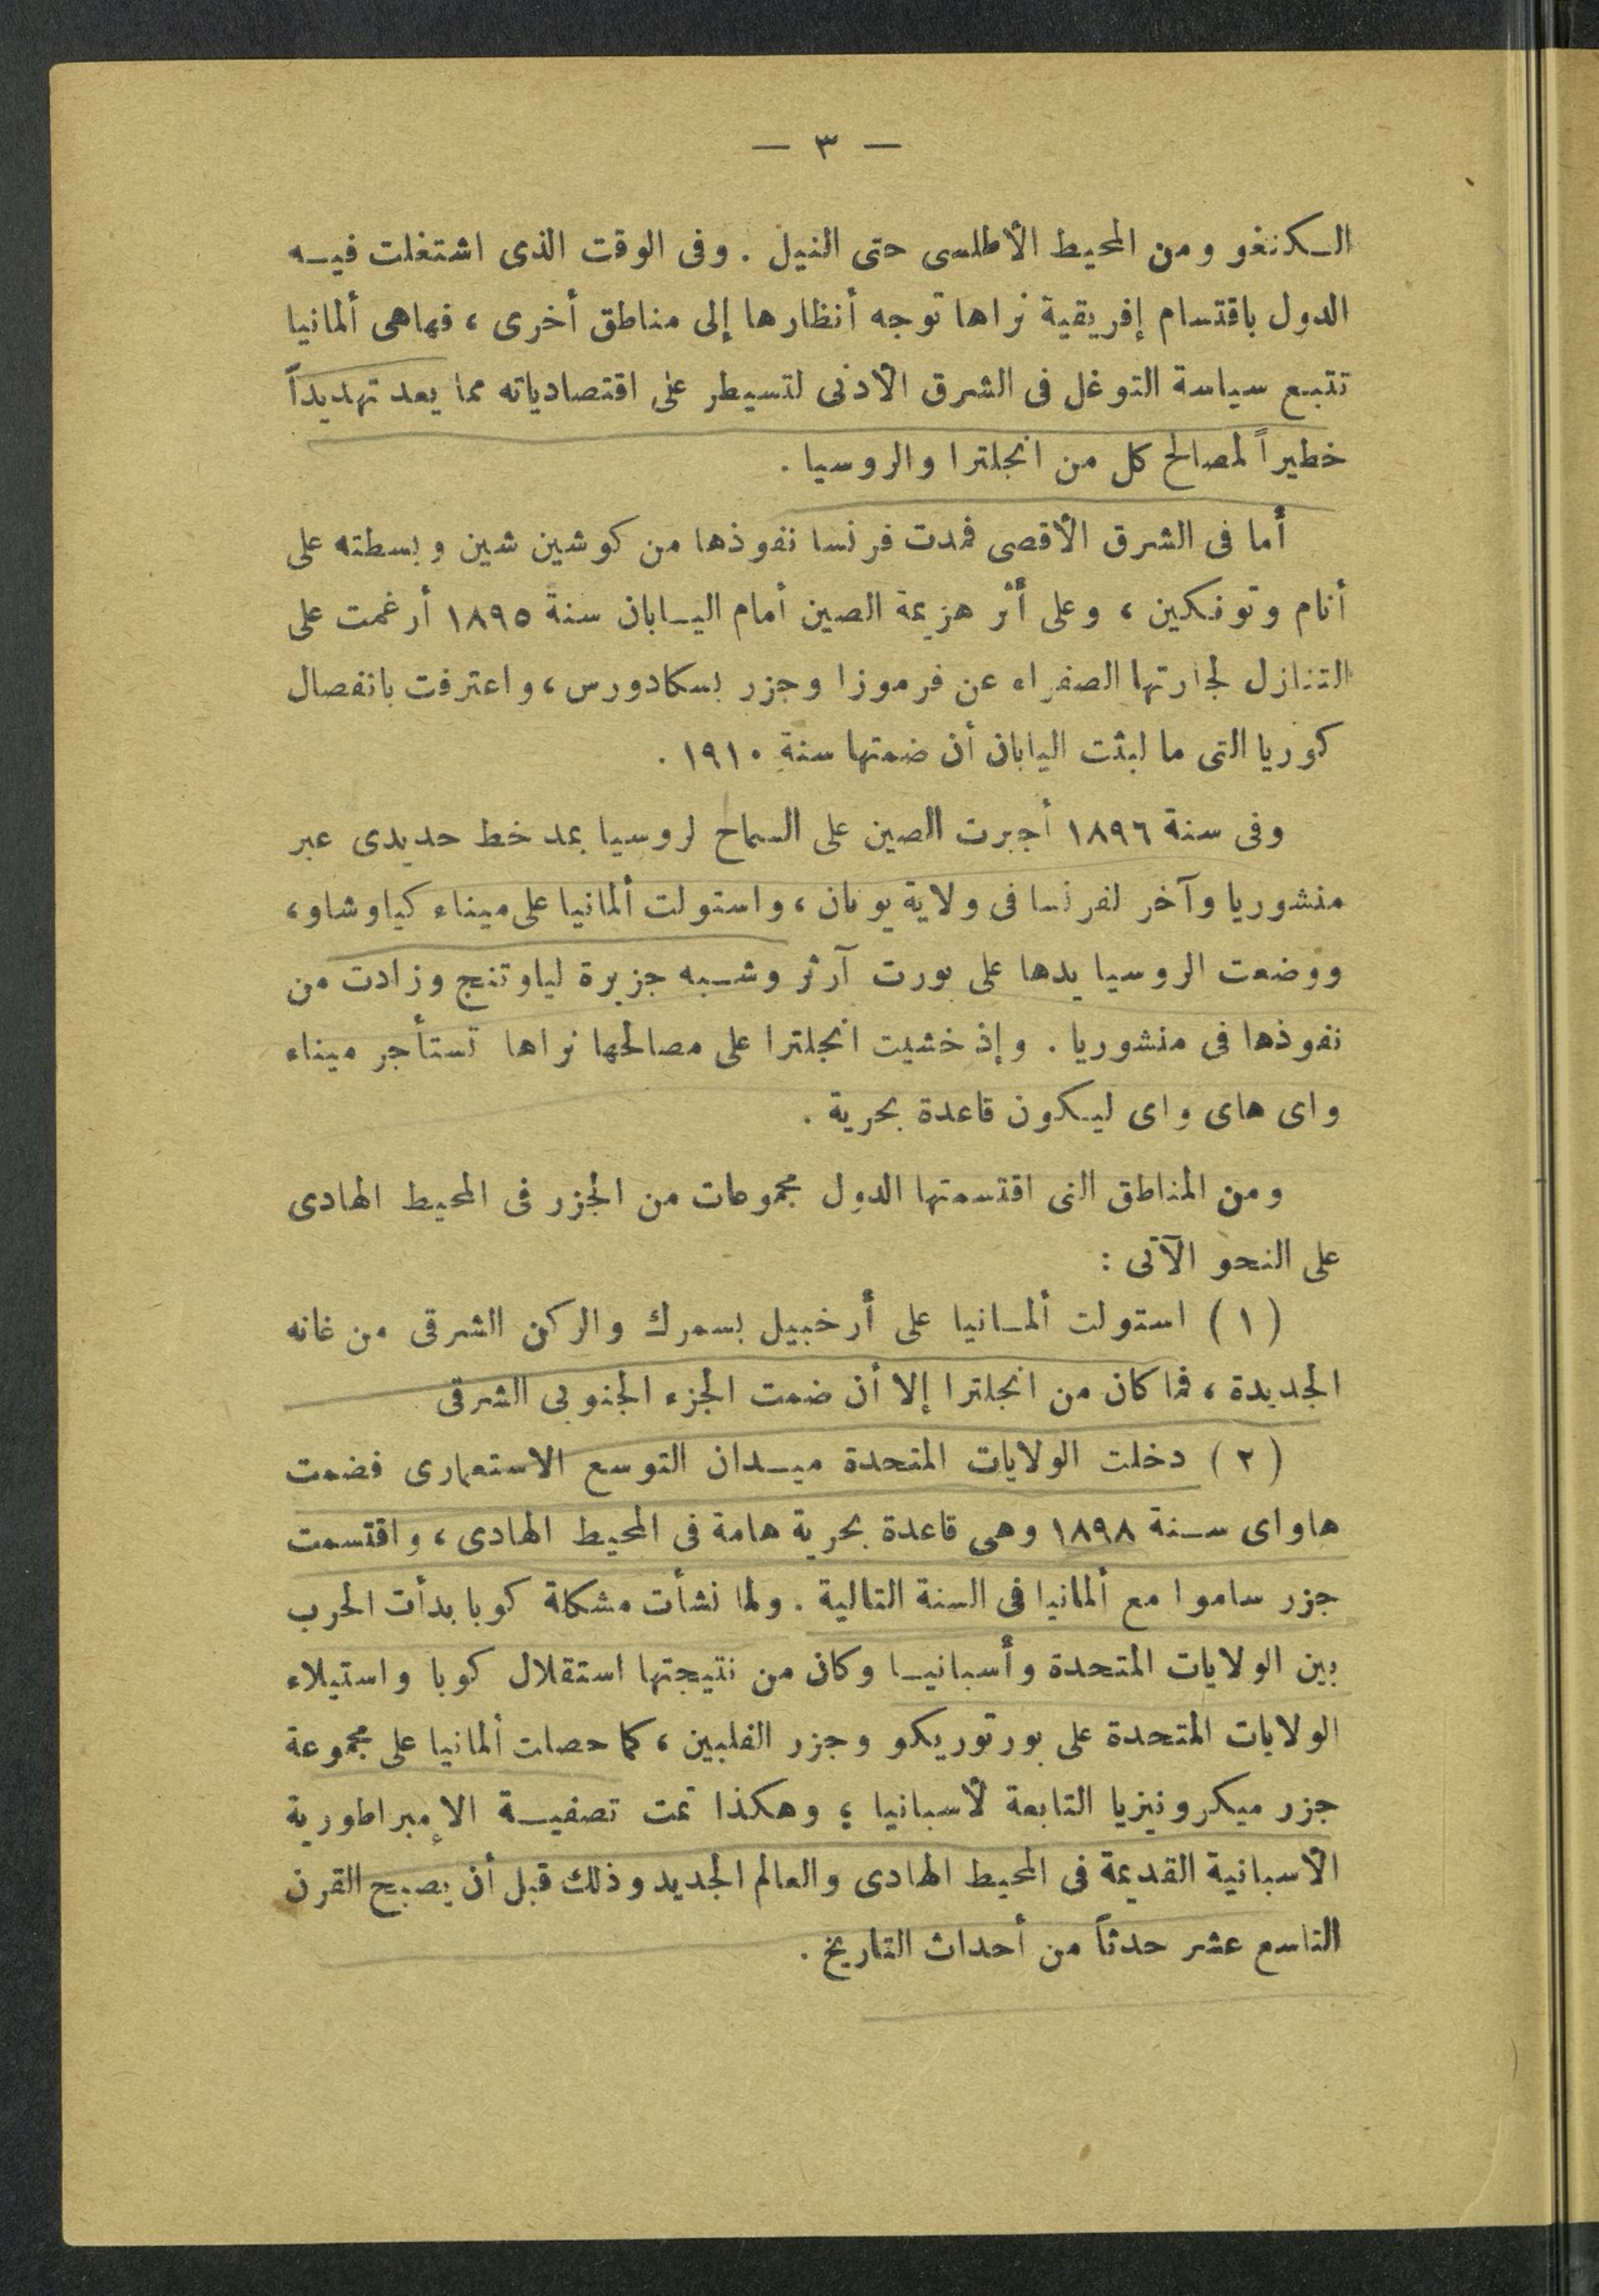 — ٣ —
الكنغو ومن المحيط الأطلسى حتى النيل . وفى الوقت الذى اشتغلت فيه
الدول باقتسام إفريقية نراها توجه أنظارها إلى مناطق أخرى ، فهاهى ألمانيا
تتبع سياسة التوغل فى الشرق الأدنى لتسيطر على اقتصادياته مما يعد تهديداً
خطيراً لمصالح كل من انجلترا والروسيا .
أما فى الشرق الأقصى فمدت فرنسا نفوذها من كوشين شين وبسطته على
أنام وتونكين ، وعلى أثر هزيمة الصين أمام اليابان سنة ١٨٩٥ أرغمت على
التنازل لجارتها الصفراء عن فرموزا وجزر بسكادورس ، واعترفت بانفصال
كوريا التى ما لبثت اليابان أن ضمتها سنة ١٩١٠ .
وفى سنة ١٨٩٦ أجبرت الصين على السماح لروسيا بمد خط حديدى عبر
منشوريا وآخر لفرنسا فى ولاية يونان ، واستولت ألمانيا على ميناء كياوشاو ،
ووضعت الروسيا يدها على بورت آرثر وشبه جزيرة لياوتنج وزادت من
نفوذها فى منشوريا . وإذ خشيت انجلترا على مصالحها نراها تستأجر ميناء
واى هاى واى ليكون قاعدة بحرية .
ومن المناطق التى اقتسمتها الدول مجموعات من الجزر فى المحيط الهادى
على النحو الآتى :
( ١ ) استولت ألمانيا على أرخبيل بسمرك والركن الشرقى من غانه
الجديدة ، فما كان من انجلترا إلا أن ضمت الجزء الجنوبى الشرقى
( ٢ ) دخلت الولايات المتحدة ميدان التوسع الاستعمارى فضمت
هاواى سنة ١٨٩٨ وهى قاعدة بحرية هامة فى المحيط الهادى ، واقتسمت
جزر ساموا مع ألمانيا فى السنة التالية . ولما نشأت مشكلة كوبا بدأت الحرب
بين الولايات المتحدة وأسبانيا وكان من نتيجتها استقلال كوبا واستيلاء
الولايات المتحدة على بورتوريكو وجزر الفلبين ، كما حصلت ألمانيا على مجموعة
جزر ميكرونيزيا التابعة لأسبانيا ؛ وهكذا تمت تصفية الإمبراطورية
الأسبانية القديمة فى المحيط الهادى والعالم الجديد وذلك قبل أن يصبح القرن
التاسع عشر حدثاً من أحداث التاريخ .